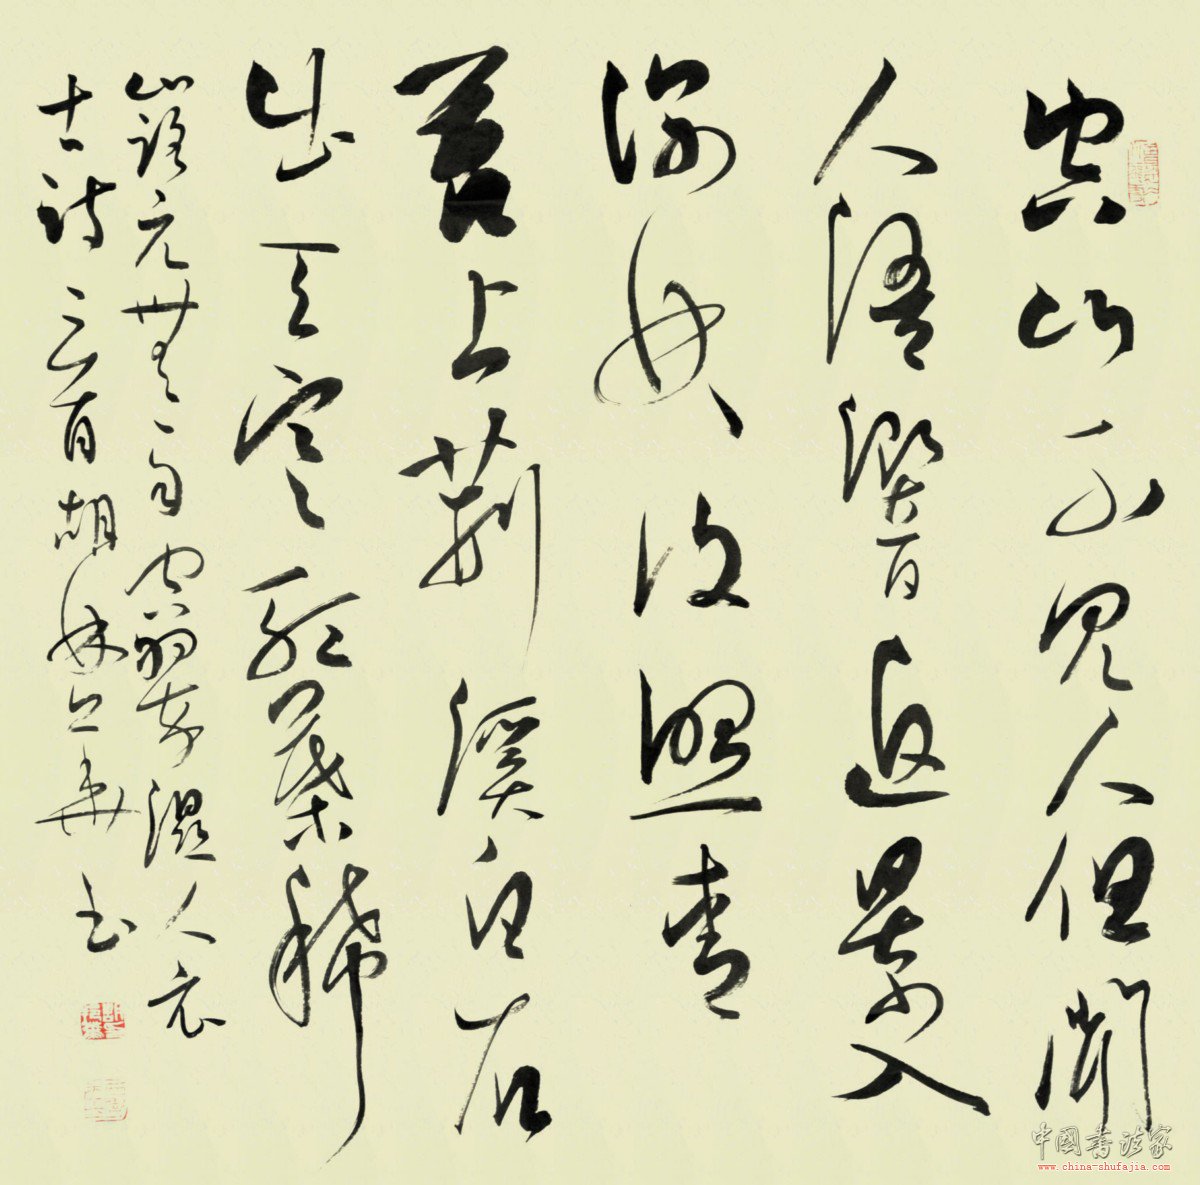 空山不見人但聞
人語響返景入
深林復照青
苔上荆溪白石
出天寒紅葉稀
山路元無雨空翠濕人衣
古詩二首胡書
中国书法家
www.china-shufajia.com